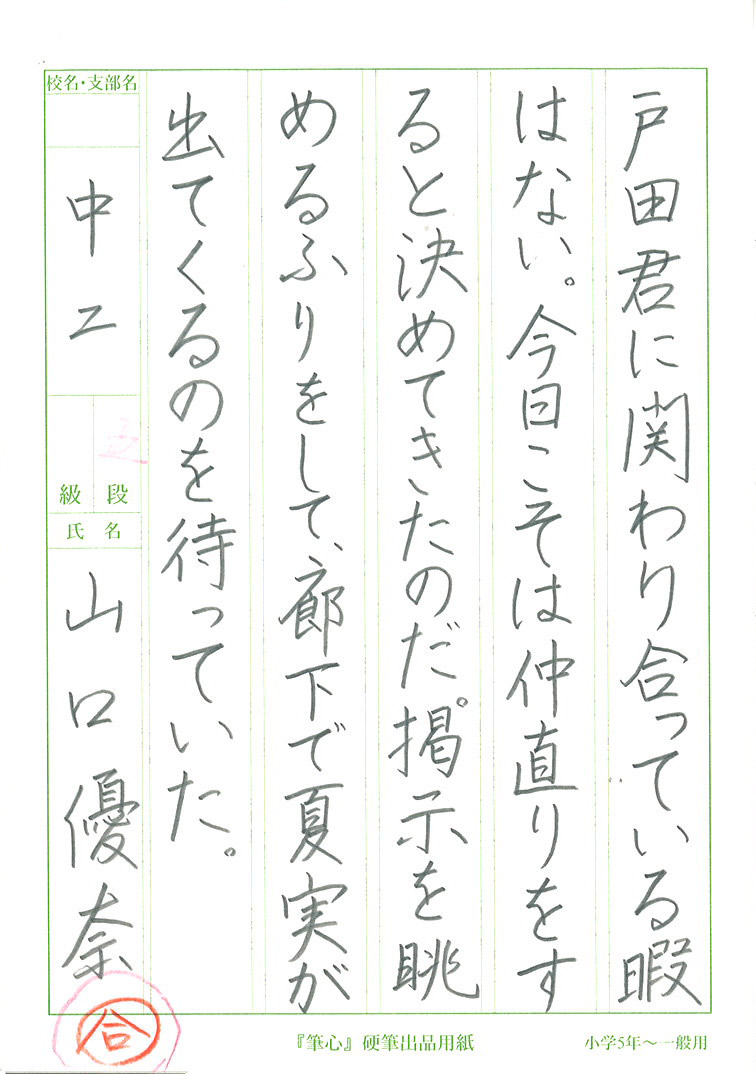 戸田君に関わり合っている暇
はない。今日こそは仲直りをす
ると決めてきたのだ。掲示を眺
めるふりをして、廊下で夏実が
出てくるのを待っていた。
校名・支部名
中二
級 段
五
氏名
山口優奈
合
『筆心』硬筆出品用紙
小学5年～一般用